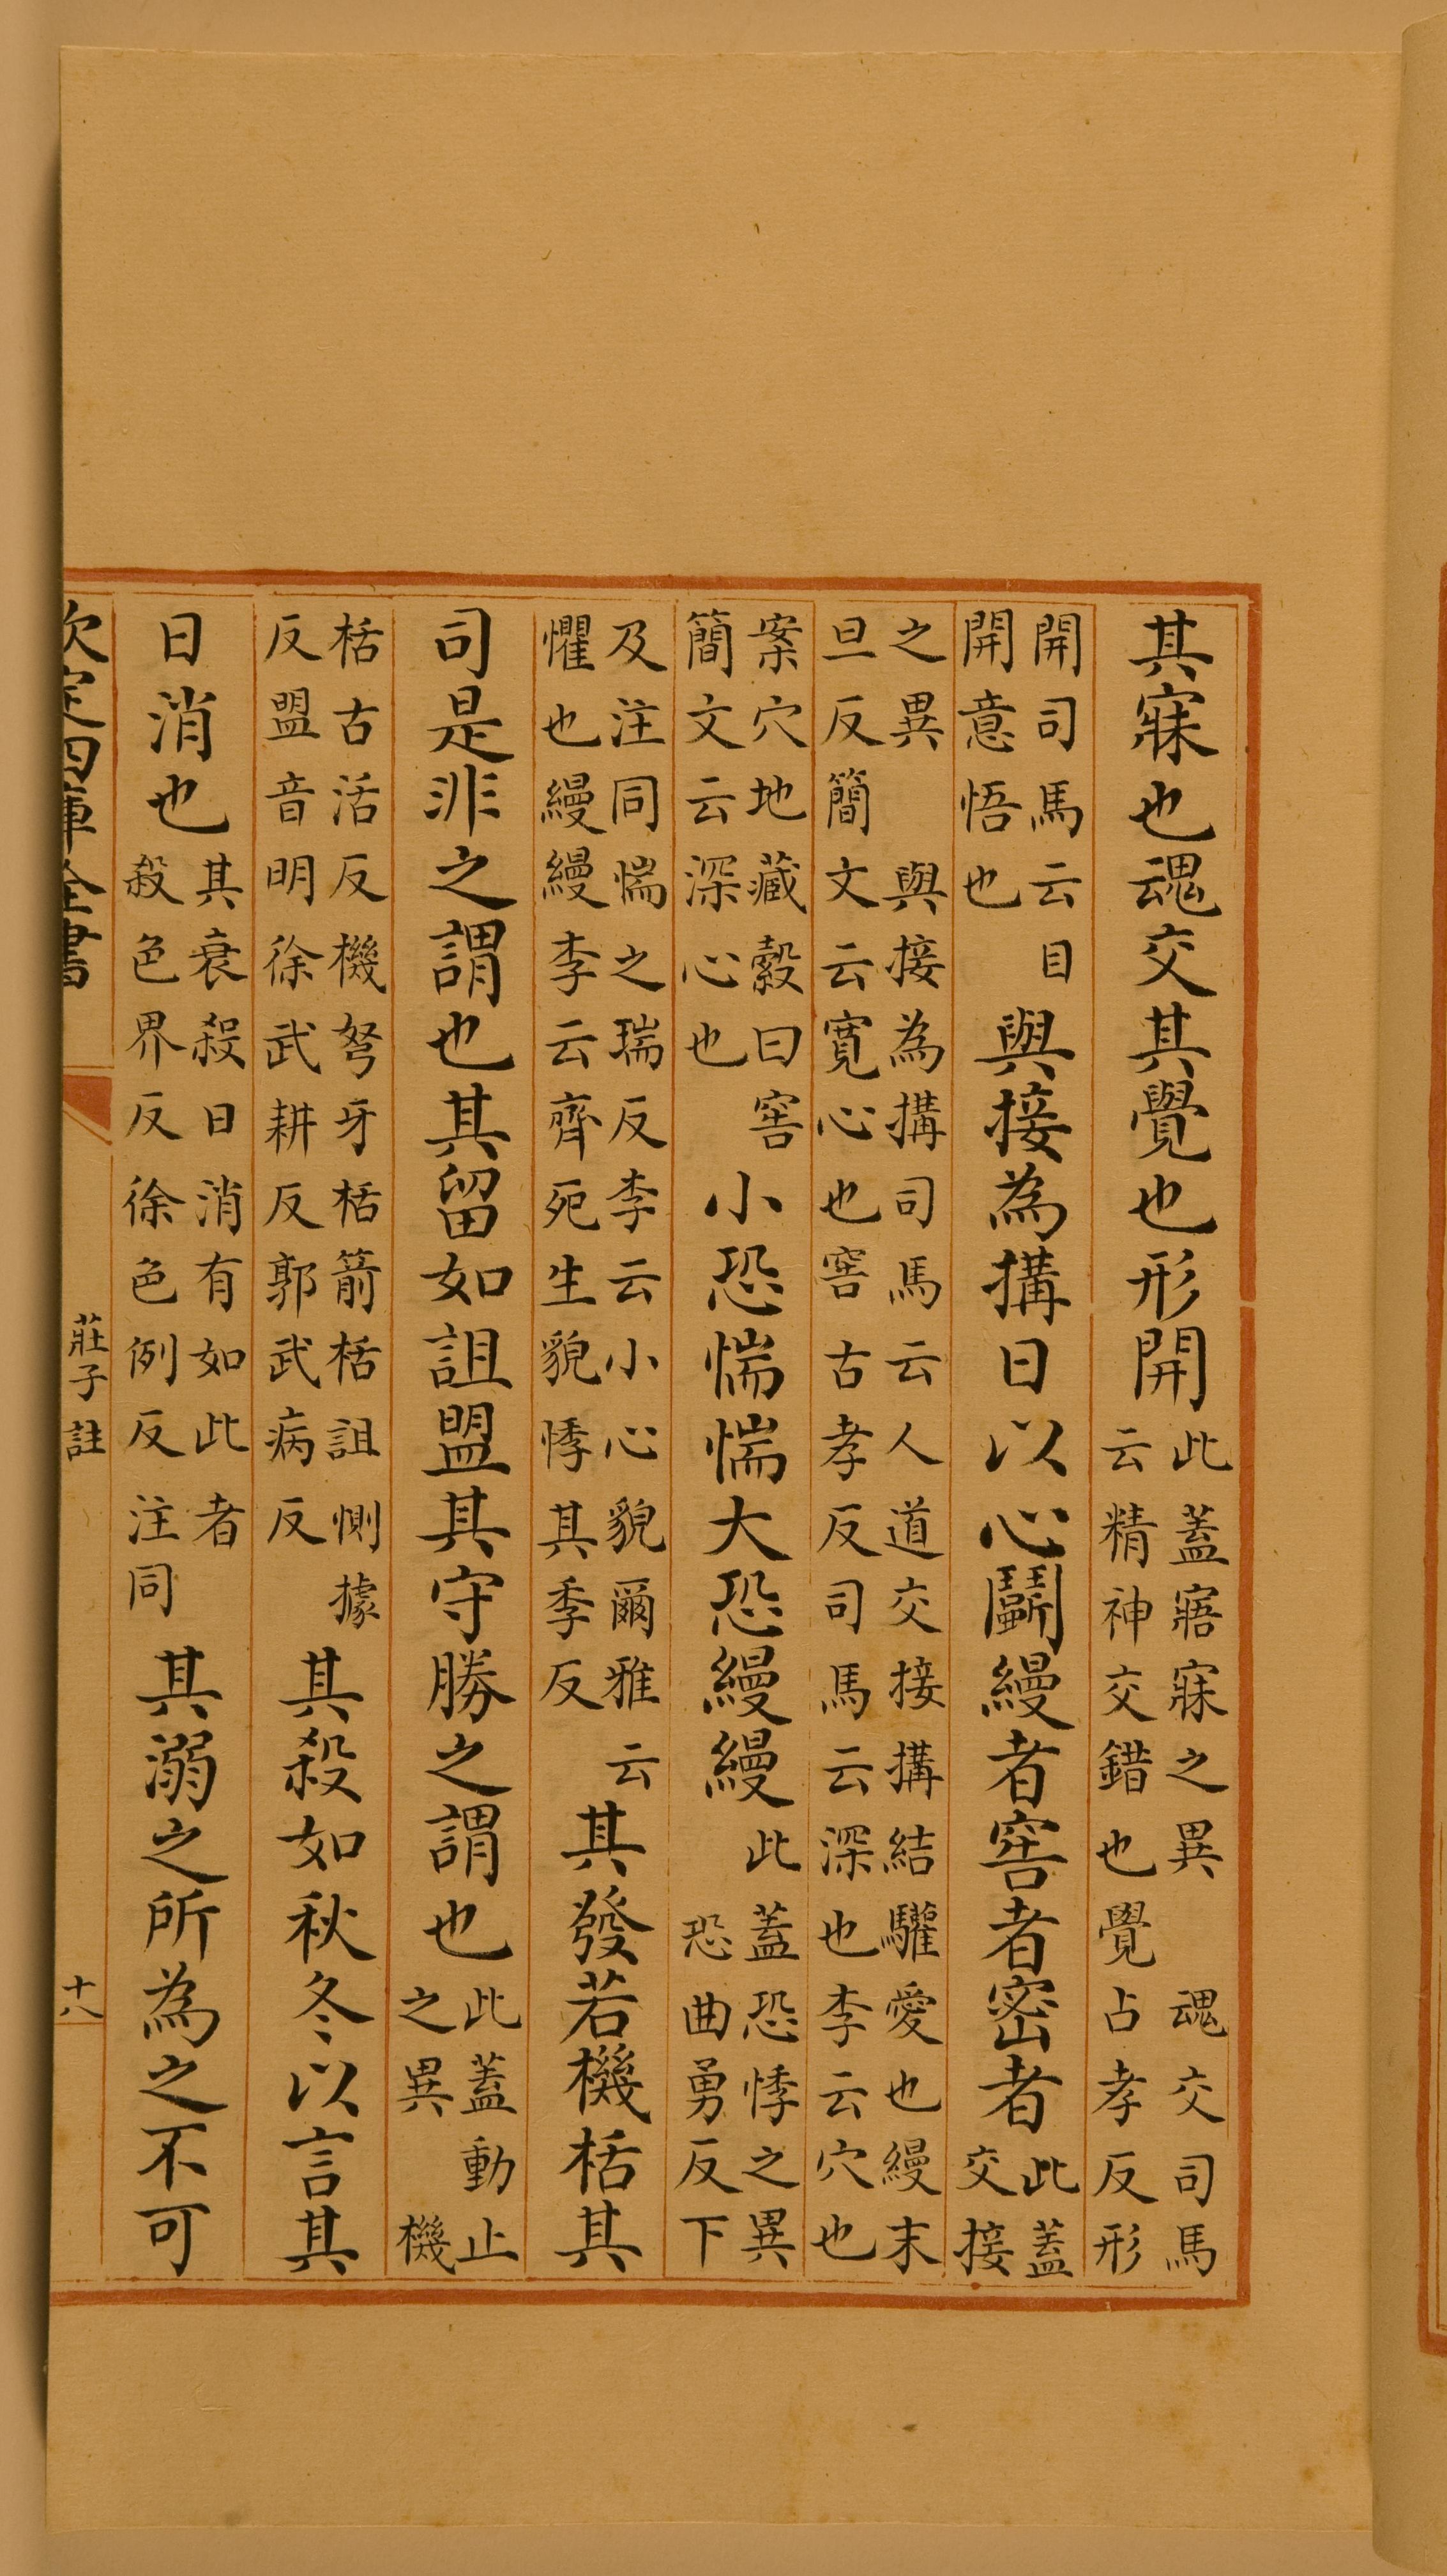 其寐也魂交其覺也形開此蓋寤寐之異　魂交司馬云精神交錯也覺占孝反形
開司馬云目開意悟也與接為搆日以心鬭縵者窖者密者此蓋交接
之異　與接為搆司馬云人道交接搆結驩愛也縵末旦反簡文云寛心也窖古孝反司馬云深也李云穴也
案穴地藏穀曰窖簡文云深心也小恐惴惴大恐縵縵此蓋恐悸之異　恐曲勇反下
及注同惴之瑞反李云小心貌爾雅云懼也縵縵李云齊死生貌悸其季反其發若機栝其
司是非之謂也其留如詛盟其守勝之謂也此蓋動止之異　機
栝古活反機弩牙栝箭栝詛惻據反盟音明徐武耕反郭武病反其殺如秋冬以言其
日消也其衰殺日消有如此者殺色界反徐色例反注同其溺之所為之不可
欽定四庫全書
莊子註
十八